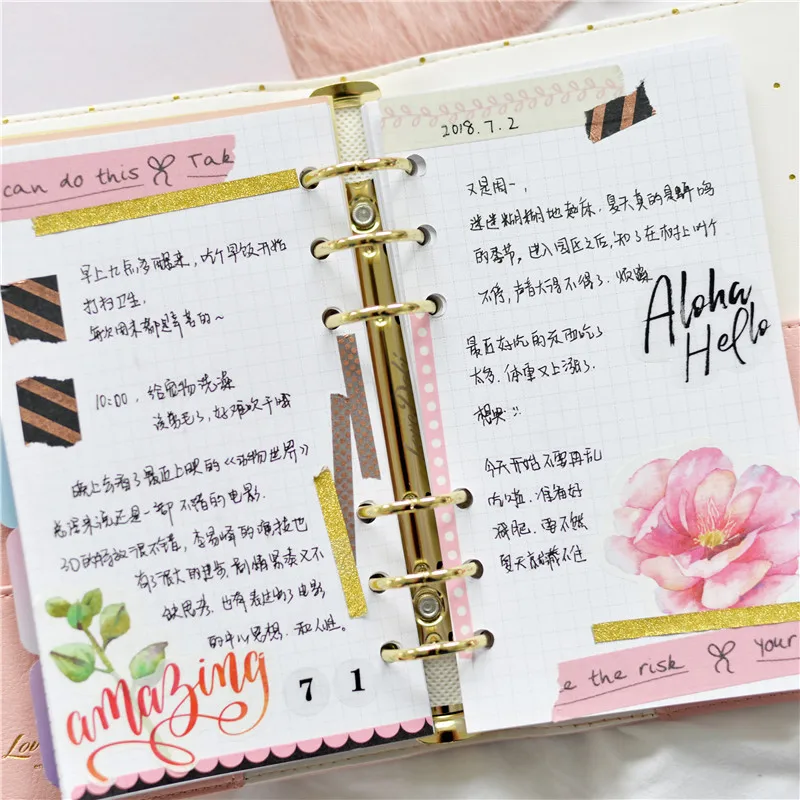 can do this Tak
早上九点多醒来，吃个早饭开始
打扫卫生，
每次周末都是辛苦的～
10:00，给宠物洗澡
该剪毛了，好难吹干哦
晚上去看了最近上映的《动物世界》
总得来说还是一部不错的电影.
3D的特效很不错，李易峰的演技也
有了很大的进步，剧情紧凑又不
缺思考，也有表达到了电影
的中心思想，和人性。
amazing
7 1
Love Doki
2018.7.2
又是周一，
迷迷糊糊地起床，夏天真的是蝉鸣
的季节，进入园区之后，知了在树上叫个
不停，声音大得不得了，烦躁
最近好吃的东西吃了
太多，体重又上涨了.
想哭
今天开始不要再乱
吃啦，准备好
减肥，要不然
夏天就藏不住
Aloha
Hello
e the risk your
Love